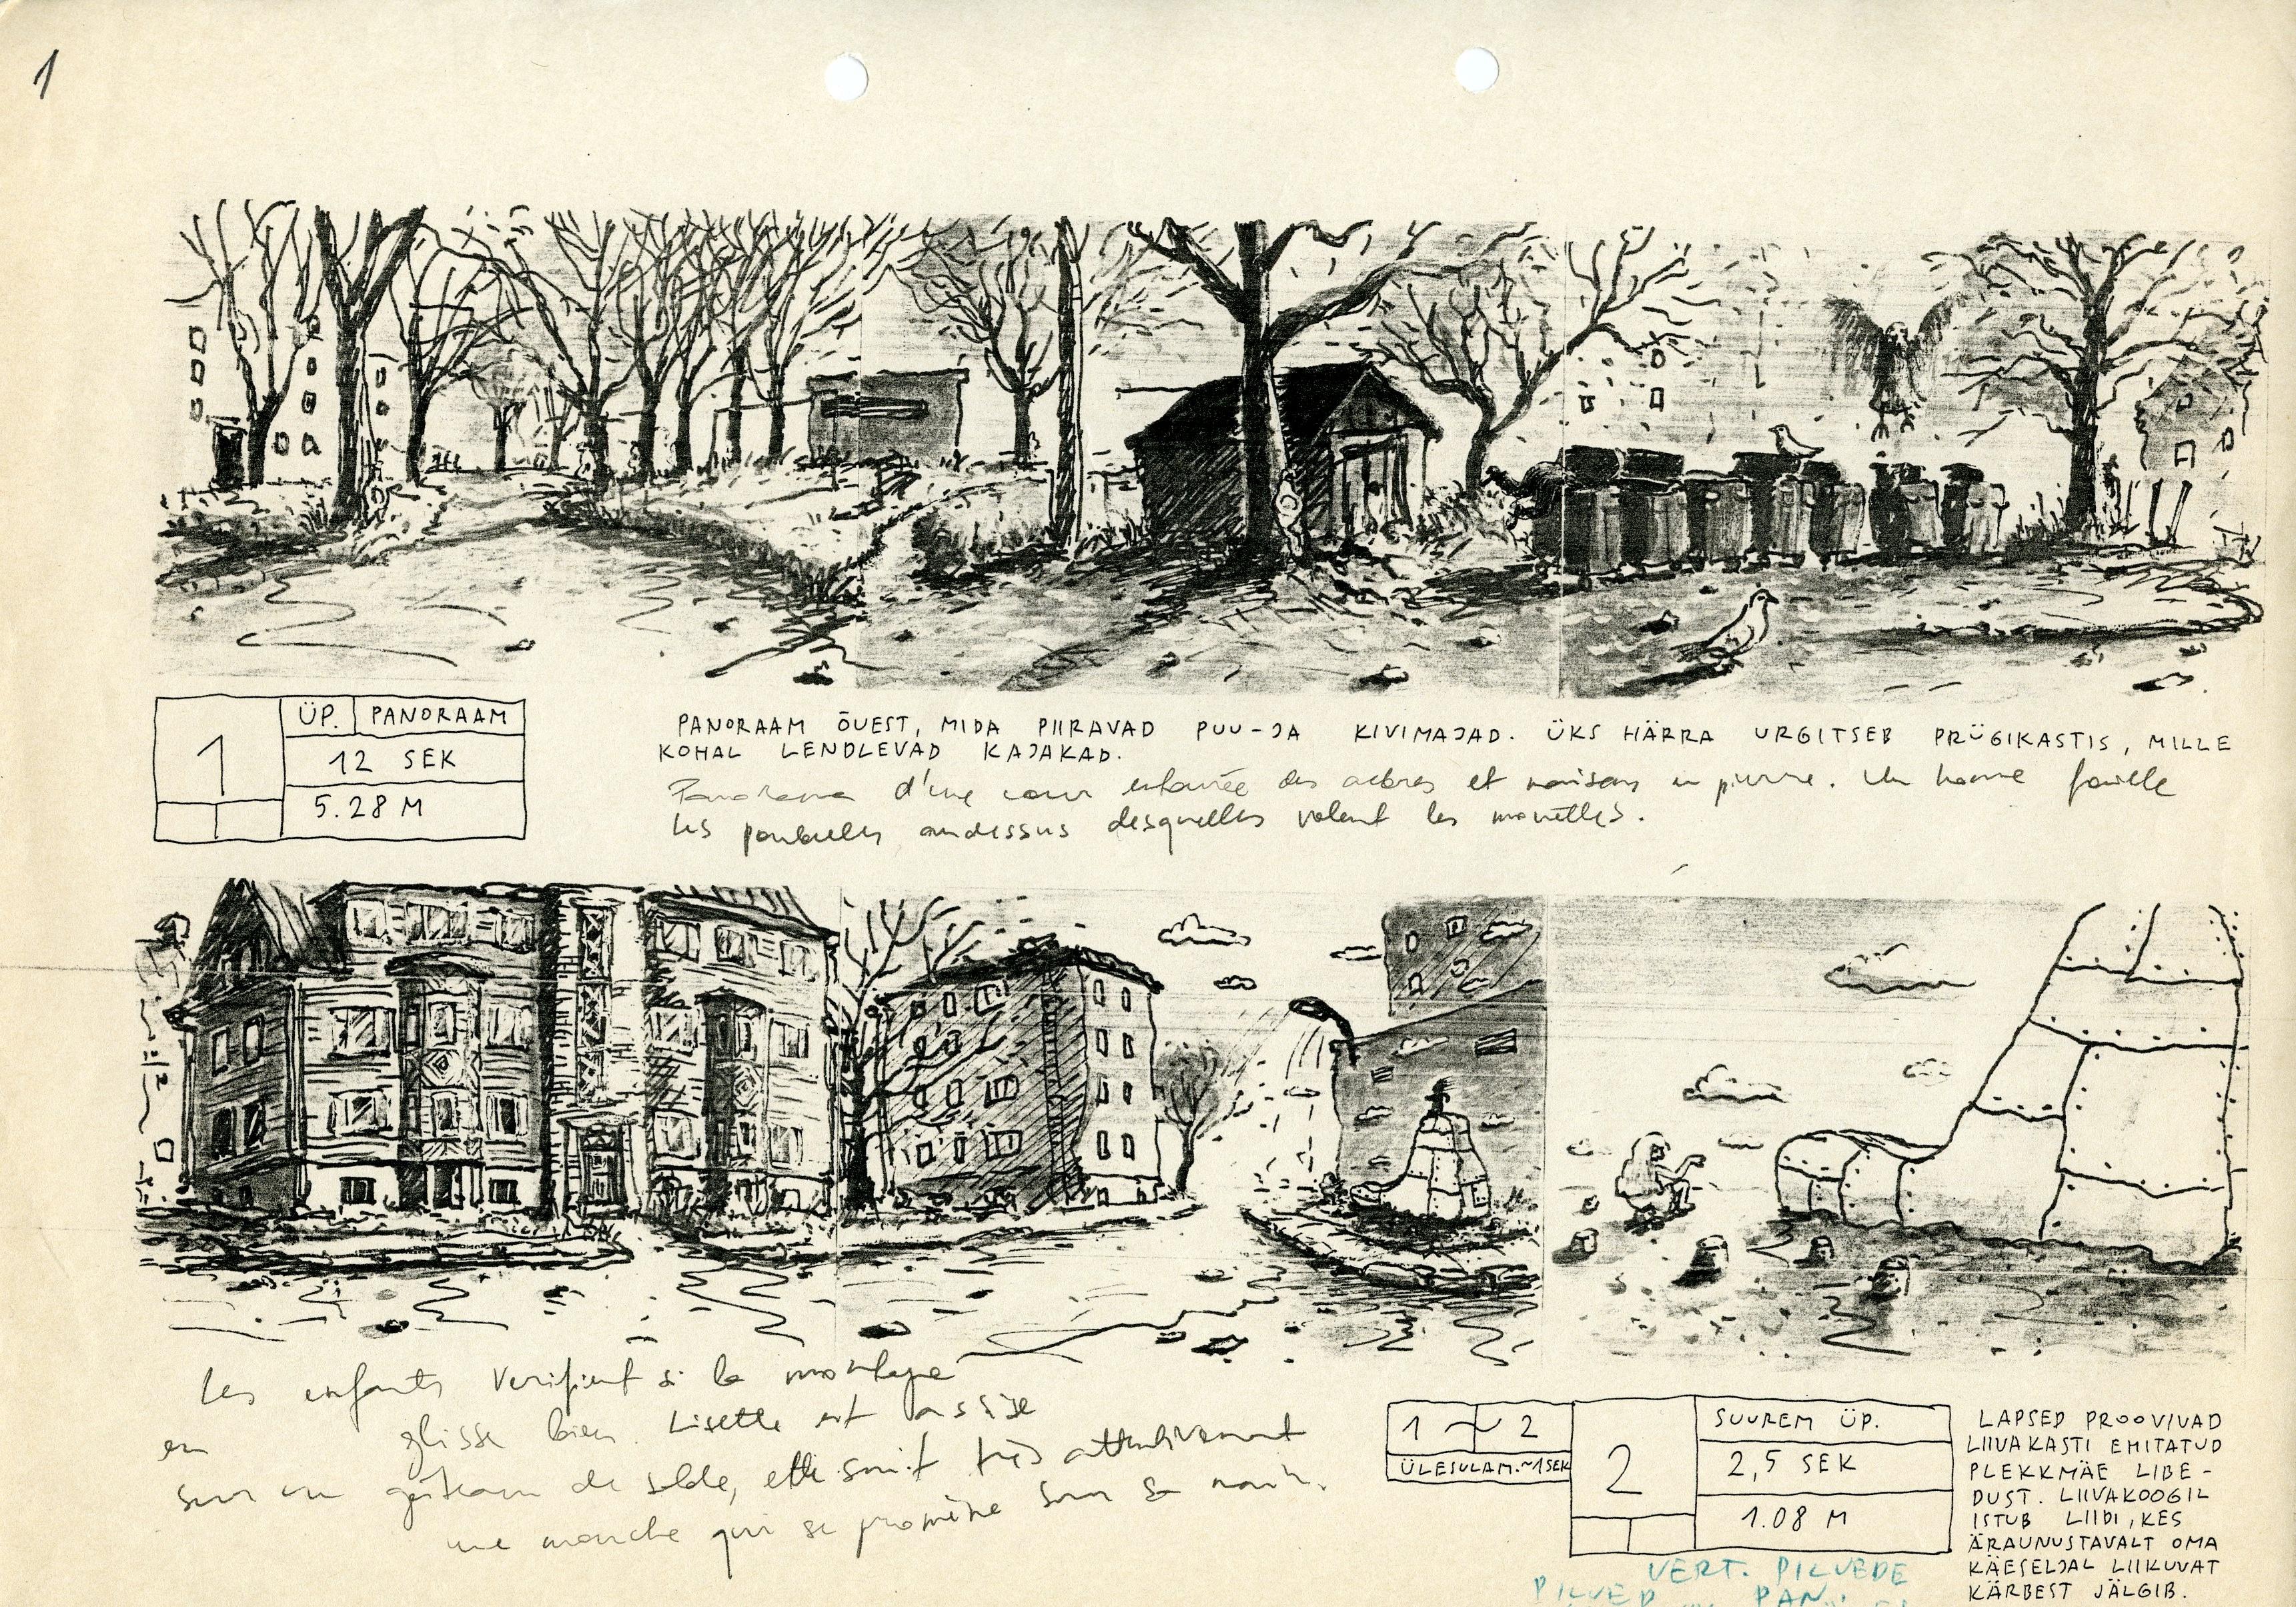 1
1
ÜP. PANORAAM
12 SEK
5.28 M
PANORAAM ÕUEST, MIDA PIIRAVAD PUU-JA KIVIMAJAD. ÜKS HÄRRA URGITSEB PRÜGIKASTIS, MILLE
KOHAL LENDLEVAD KAJAKAD.
Panorama d'une cour entourée des arbres et maisons en pierre. Un homme fouille
les poubelles audessus desquelles volent les mouettes.
Les enfants verifient si la montagne
en glisse bien. Lisette est assise
sur un gâteau de sable, elle suit très attentivement
une mouche qui se promène sur sa main.
1 ~ 2
ÜLESULAM.~1SEK
2
SUUREM ÜP.
2,5 SEK
1.08 M
LAPSED PROOVIVAD
LIIVAKASTI EHITATUD
PLEKKMÄE LIBE-
DUST. LIIVAKOOGIL
ISTUB LIIDI, KES
ÄRAUNUSTAVALT OMA
KÄESELJAL LIIKUVAT
KÄRBEST JÄLGIB.
VERT. PILVEDE
PILVED PAN.